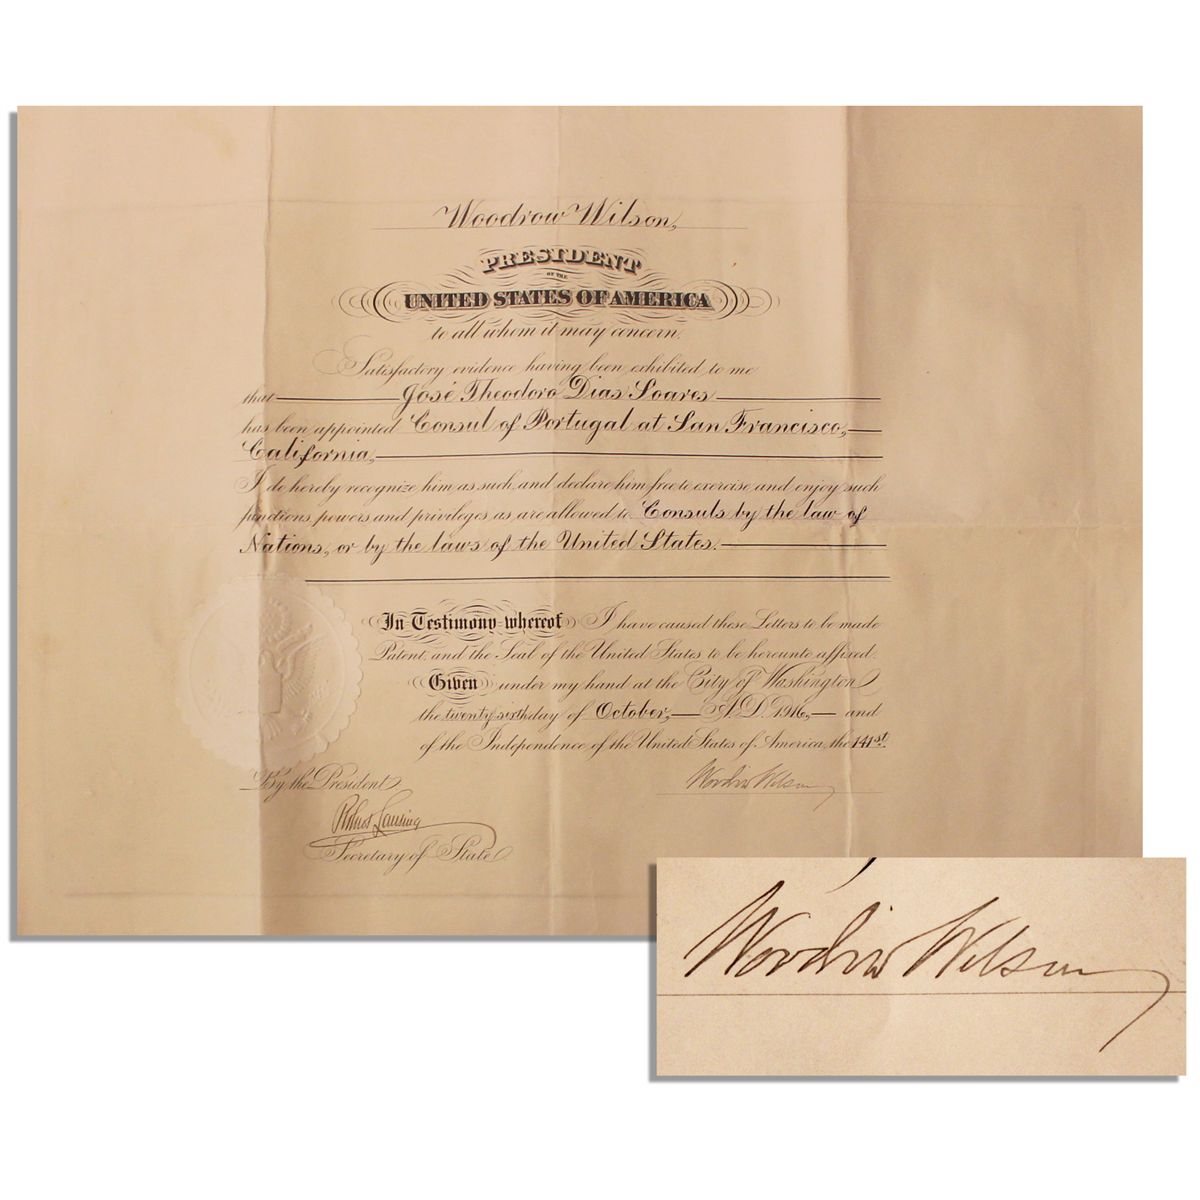 Woodrow Wilson,
PRESIDENT
OF THE
UNITED STATES OF AMERICA
to all whom it may concern.
Satisfactory evidence having been exhibited to me
that José Theodoro Dias Soares
has been appointed Consul of Portugal at San Francisco,
California,
I do hereby recognize him as such, and declare him free to exercise and enjoy such
functions, powers and privileges as are allowed to Consuls by the law of
Nations, or by the laws of the United States.
In Testimony whereof I have caused these Letters to be made
Patent, and the Seal of the United States to be hereunto affixed.
Given under my hand at the City of Washington
the twenty sixth day of October, A.D. 1916, and
of the Independence of the United States of America, the 141st.
By the President
Woodrow Wilson
Robert Lansing
Secretary of State
Woodrow Wilson